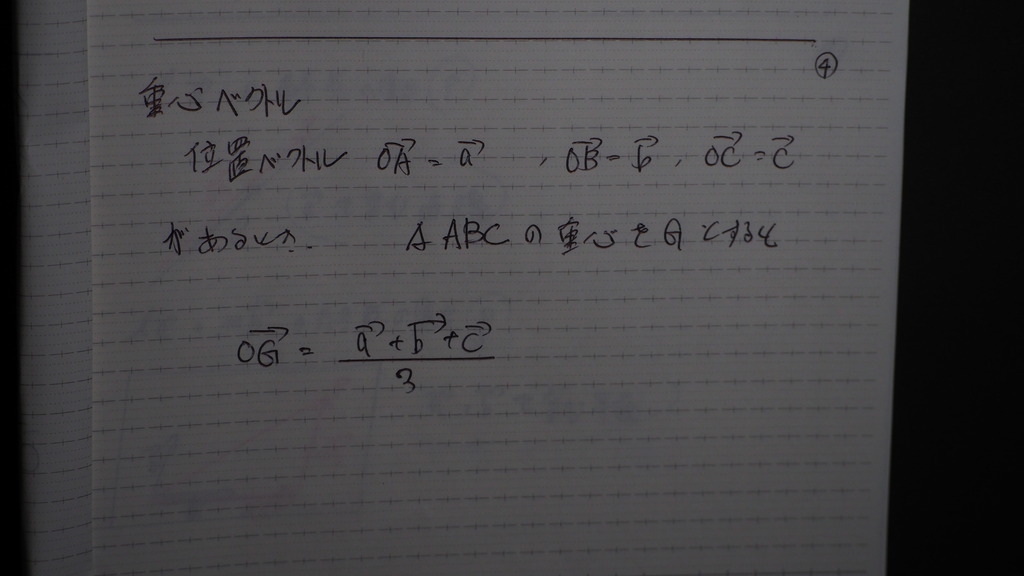 ④
重心ベクトル
位置ベクトル $\overrightarrow{OA} = \vec{a}$ , $\overrightarrow{OB} = \vec{b}$ , $\overrightarrow{OC} = \vec{c}$
があるとき. △ABCの重心をGとすると
$\overrightarrow{OG} = \frac{\vec{a} + \vec{b} + \vec{c}}{3}$